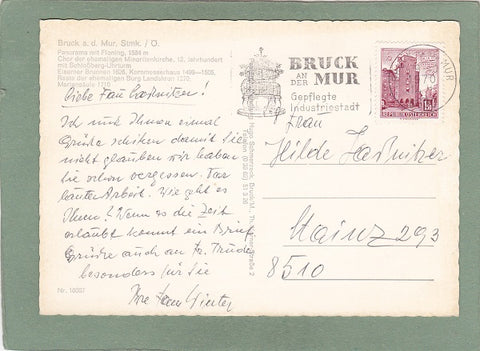 Bruck a. d. Mur, Stmk. / Ö.
Panorama mit Floning, 1584 m
Chor der ehemaligen Minoritenkirche, 12. Jahrhundert
mit Schloßberg-Uhrturm
Eiserner Brunnen 1626, Kornmesserhaus 1499—1505,
Reste der ehemaligen Burg Landskron 1270,
Mariensäule 1710
Liebe Frau
Ich muß Ihnen einmal
Grüße schicken damit Sie
nicht glauben wir haben
Sie schon vergessen. Vor
lauter Arbeit. Wie geht es
Ihnen? Wenn es die Zeit
erlaubt kommt ein Brief
Grüße auch an Fr. Trude
besonders für Sie
Ihre Fam Winter
Nr. 16397
BRUCK
AN DER MUR
Gepflegte
Industriestadt
REPUBLIK ÖSTERREICH
MUR
70
Frau
Hilde
Stainz 293
8510